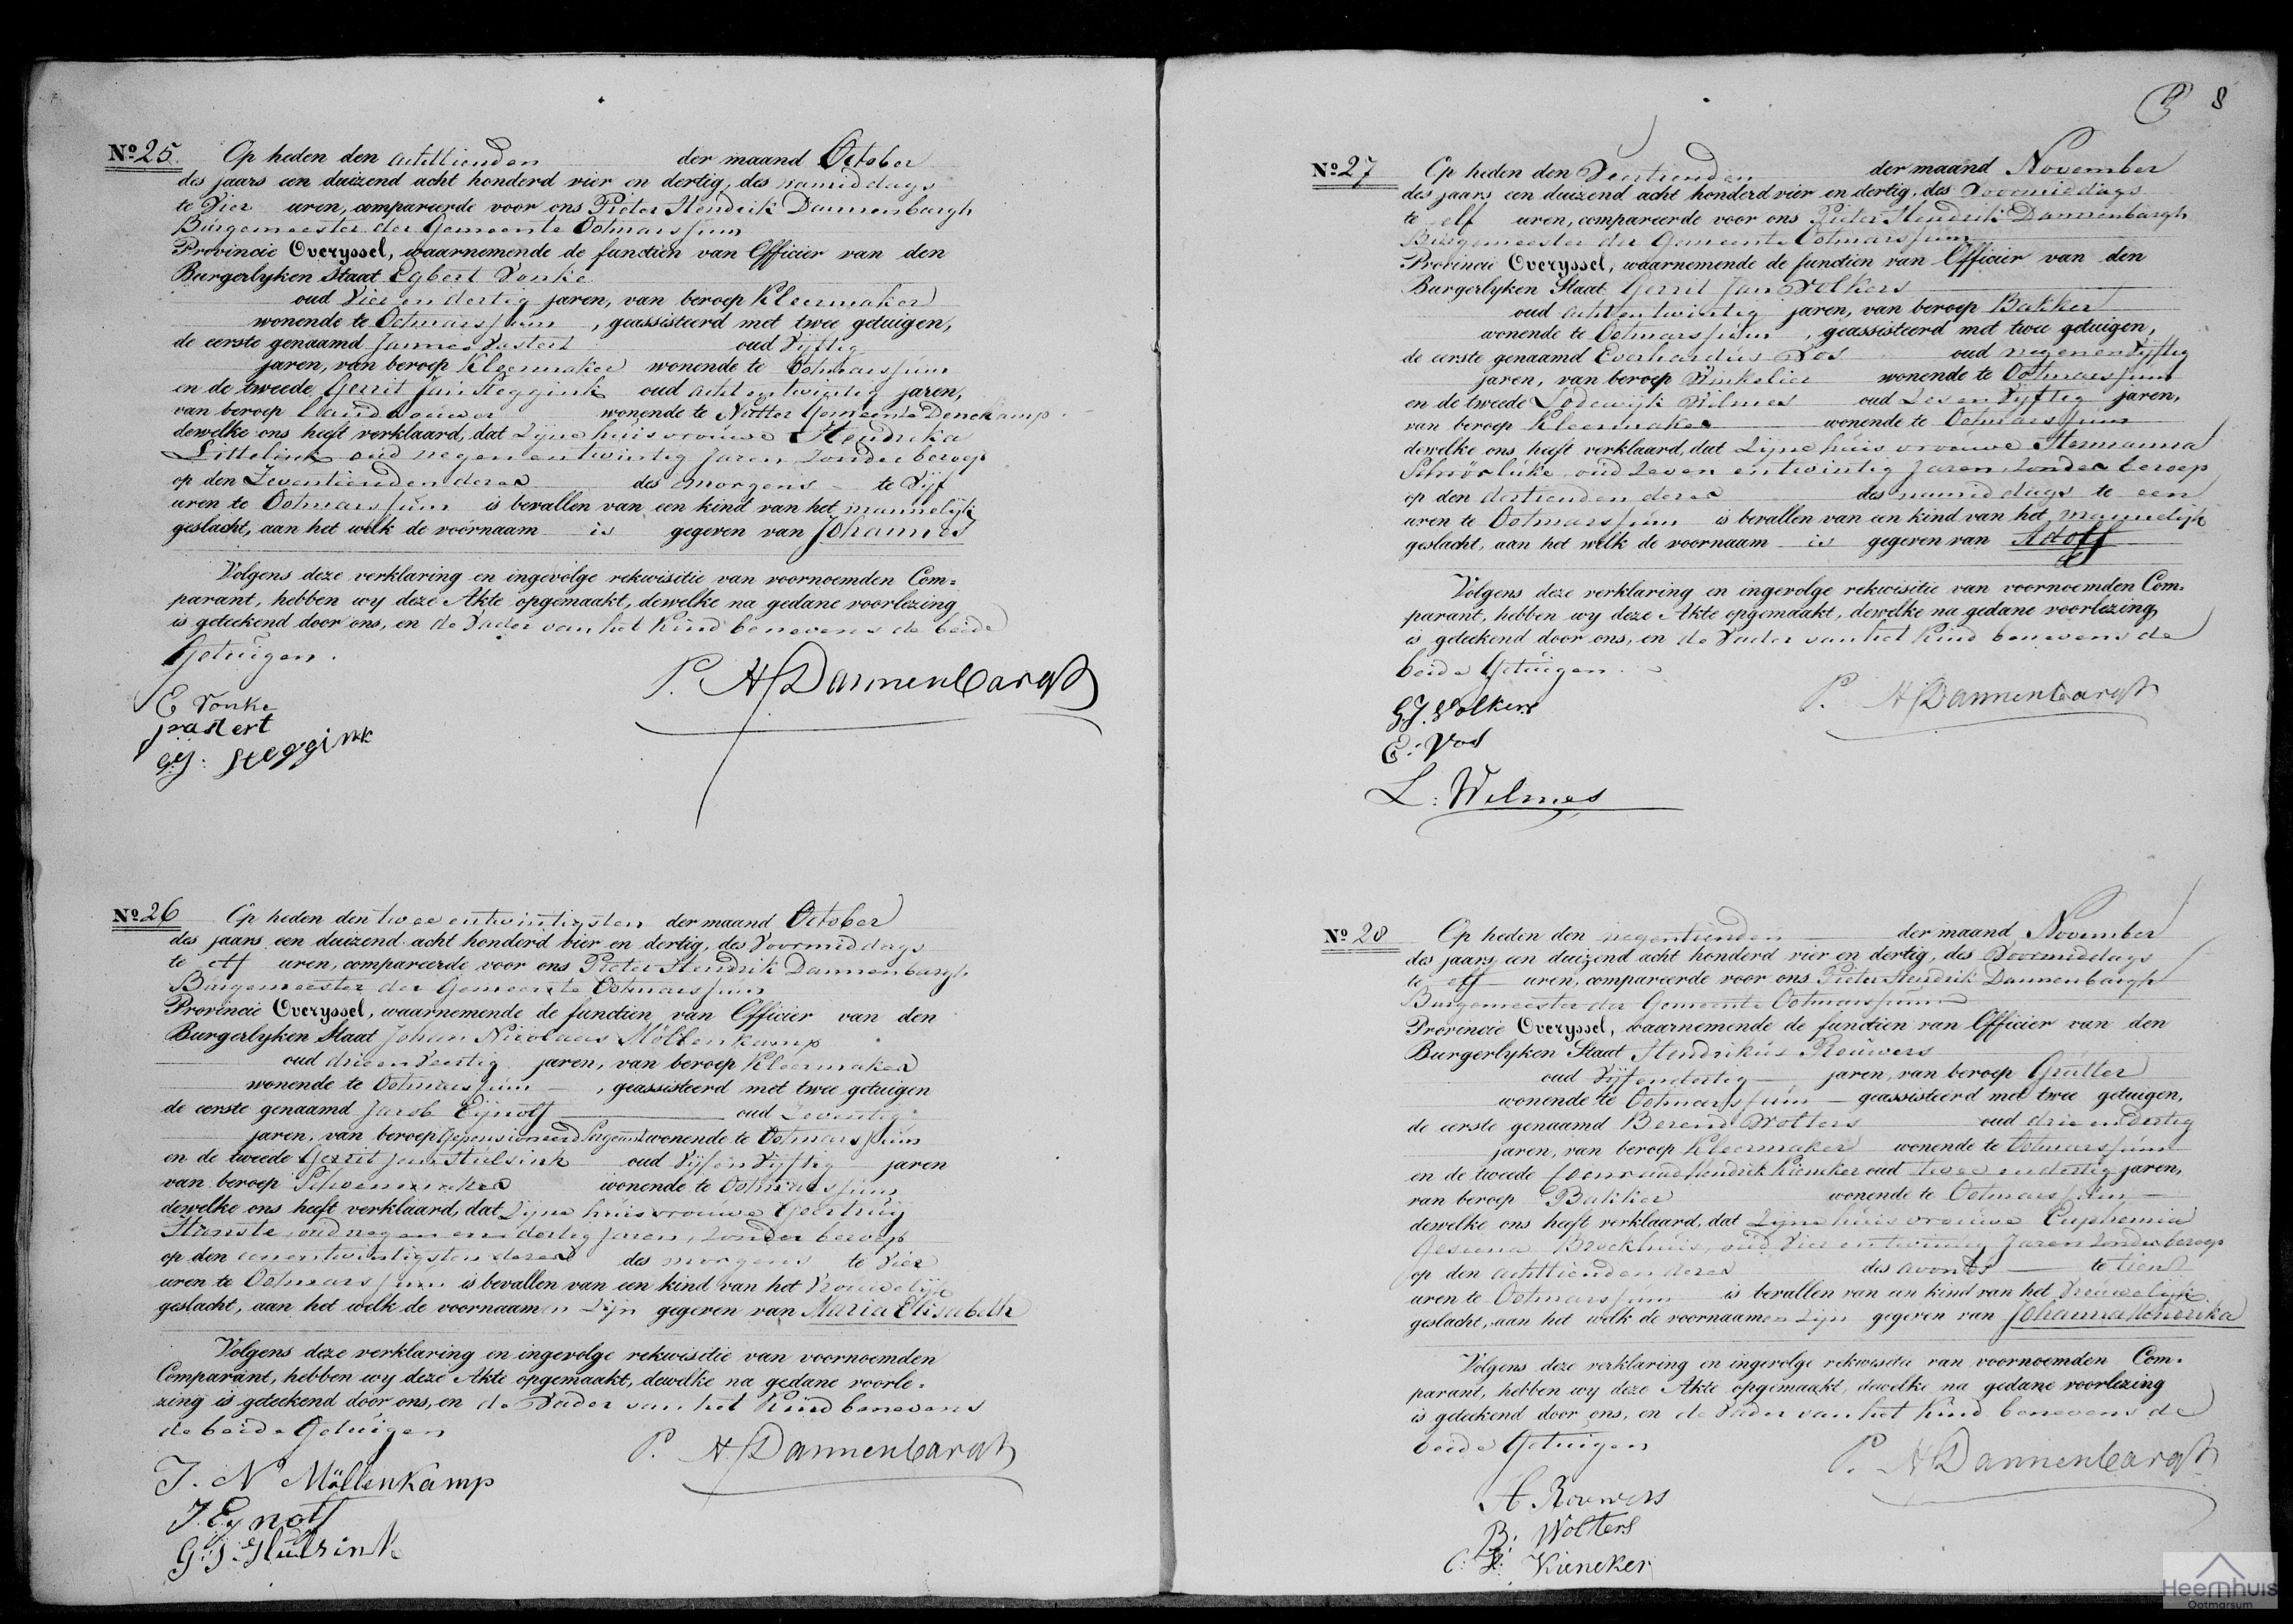 № 25. Op heden den achttienden der maand October
des jaars een duizend acht honderd vier en dertig, des namiddags
te Vier uren, compareerde voor ons Pieter Hendrik Dannenbargh
Burgemeester der Gemeente Ootmarssum
Provincie Overyssel, waarnemende de functien van Officier van den
Burgerlyken Staat Egbert Vonke
oud Vier en dertig jaren, van beroep Kleermaker
wonende te Ootmarssum, geassisteerd met twee getuigen,
de eerste genaamd Jannes Vastert oud Vyftig
jaren, van beroep Kleermaker wonende te Ootmarssum
en de tweede Gerrit Jan Steggink oud acht en twintig jaren,
van beroep Landbouwer wonende te Nutter Gemeente Denekamp
dewelke ons heeft verklaard, dat Zyne huisvrouwe Hendrika
Littelink oud negen en twintig Jaren Zonder beroep
op den Zeventienden dezer des morgens te Vyf
uren te Ootmarssum is bevallen van een kind van het mannelijk
geslacht, aan het welk de voornaam is gegeven van Johannes
Volgens deze verklaring en ingevolge rekwisitie van voornoemden Com=
parant, hebben wy deze Akte opgemaakt, dewelke na gedane voorlezing
is geteekend door ons, en de Vader van het Kind benevens de beide
Getuigen.
P. H Dannenbargh
E Vonke
G J: Steggink
№ 26 Op heden den twee entwintigsten der maand October
des jaars een duizend acht honderd vier en dertig, des Voormiddags
te elf uren, compareerde voor ons Pieter Hendrik Dannenbargh
Burgemeester der Gemeente Ootmarssum
Provincie Overyssel, waarnemende de functien van Officier van den
Burgerlyken Staat Johan Nicolaas Möllenkamp
oud drie en Veertig jaren, van beroep Kleermaker
wonende te Ootmarssum, geassisteerd met twee getuigen
de eerste genaamd Jacob Eijnoth oud Zeventig
jaren, van beroep Gepensioneerd Sergeant wonende te Ootmarssum
en de tweede Gerrit Jan Hulsink oud Vyf en Vyftig jaren
van beroep Schoenmaker wonende te Ootmarssum
dewelke ons heeft verklaard, dat Zyne huisvrouwe Geertruy
oud negen en dertig Jaren, Zonder beroep
op den een entwintigsten dezer des morgens te Vier
uren te Ootmarssum is bevallen van een kind van het Vrouwelyk
geslacht, aan het welk de voornaamen Zijn gegeven van Maria Elisabeth
Volgens deze verklaring en ingevolge rekwisitie van voornoemden
Comparant, hebben wy deze Akte opgemaakt, dewelke na gedane voorle=
zing is geteekend door ons, en de Vader van het Kind benevens
de beide Getuigen
P. H Dannenbargh
J. N Möllenkamp
J. Eynoth
G: J: Hulsink
8
№ 27 Op heden den Veertienden der maand November
des jaars een duizend acht honderd vier en dertig, des Voormiddags
te elf uren, compareerde voor ons Pieter Hendrik Dannenbargh
Burgemeester der Gemeente Ootmarssum
Provincie Overyssel, waarnemende de functien van Officier van den
Burgerlyken Staat Gerrit Jan Volkers
oud acht en twintig jaren, van beroep Bakker
wonende te Ootmarssum, geassisteerd met twee getuigen,
de eerste genaamd Everhardus Vos oud negen en Vyftig
jaren, van beroep Winkelier wonende te Ootmarssum
en de tweede Lodewyk Wilmes oud Zes en Vyftig jaren,
van beroep Kleermaker wonende te Ootmarssum
dewelke ons heeft verklaard, dat Zijne huisvrouwe Hermanna
oud Zeven en twintig Jaren Zonder beroep
op den dertienden dezer des namiddags te een
uren te Ootmarssum is bevallen van een kind van het mannelijk
geslacht, aan het welk de voornaam is gegeven van Adolf
Volgens deze verklaring en ingevolge rekwisitie van voornoemden Com=
parant, hebben wy deze Akte opgemaakt, dewelke na gedane voorlezing
is geteekend door ons, en de Vader van het Kind benevens de
beide Getuigen
P. H Dannenbargh
G.J. Volkers
E: Vos
L: Wilmes
№ 28 Op heden den negentienden der maand November
des jaars een duizend acht honderd vier en dertig, des Voormiddags
te elf uren, compareerde voor ons Pieter Hendrik Dannenbargh
Burgemeester der Gemeente Ootmarssum
Provincie Overyssel, waarnemende de functien van Officier van den
Burgerlyken Staat Hendrikus Reuwers
oud Vyf en dertig jaren, van beroep Grutter
wonende te Ootmarssum geassisteerd met twee getuigen,
de eerste genaamd Berend Wolters oud drie en dertig
jaren, van beroep Kleermaker wonende te Ootmarssum
en de tweede Coenraad Hendrik Kieneker oud twee en dertig jaren,
van beroep Bakker wonende te Ootmarssum
dewelke ons heeft verklaard, dat Zijne huisvrouwe Euphemia
Gesiena Brockhuis, oud Vier en twintig Jaren Zonder beroep
op den achttienden dezer des avonds te tien
uren te Ootmarssum is bevallen van een kind van het Vrouwelijk
geslacht, aan het welk de voornaamen Zijn gegeven van Johanna
Volgens deze verklaring en ingevolge rekwisitie van voornoemden Com=
parant, hebben wy deze Akte opgemaakt, dewelke na gedane voorlezing
is geteekend door ons, en de Vader van het Kind benevens de
beide Getuigen
P. H Dannenbargh
H. Reuwers
B: Wolters
C: H: Kieneker
Heemhuis
Ootmarsum